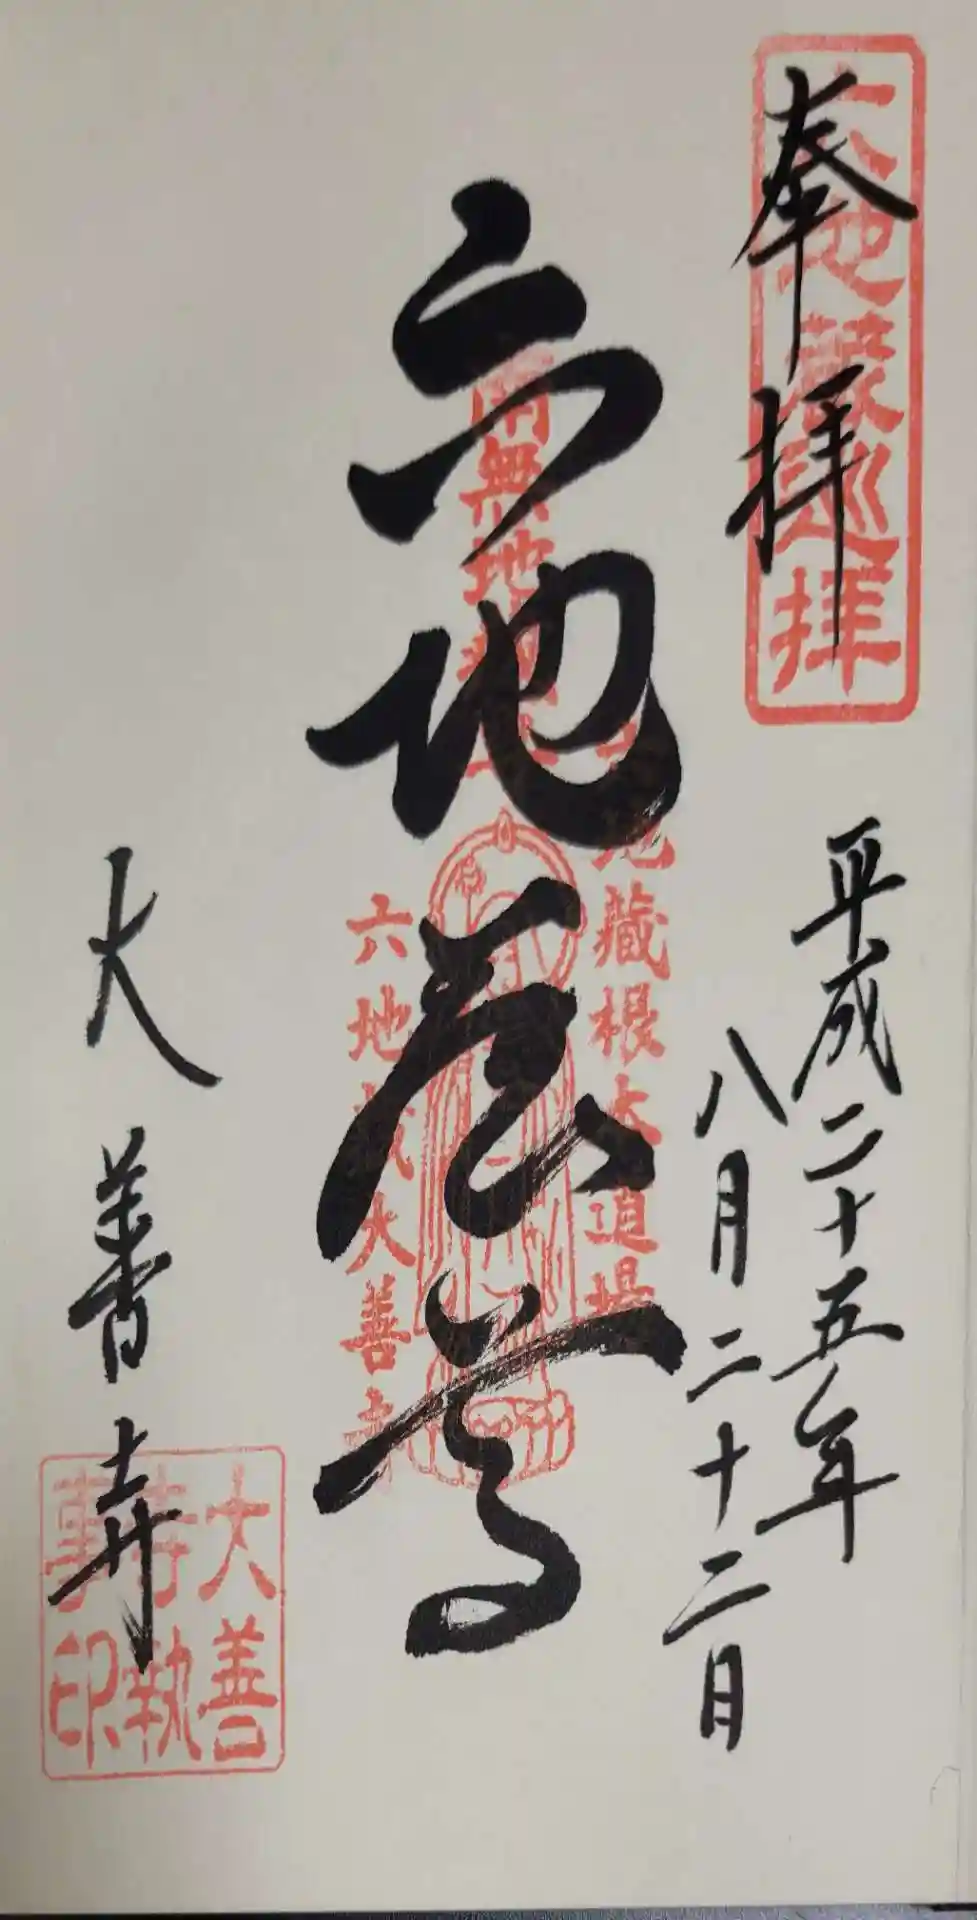 奉拝
六地蔵巡拝
平成二十五年
八月二十二日
六地蔵尊
南無地蔵
地蔵根本道場
六地蔵大善寺
大善寺
大善寺執事印